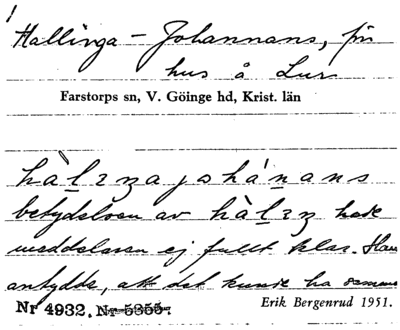 Hallinga-Johannans, fr.
hus å Lur
Farstorps sn, V. Göinge hd, Krist. län
betydelsen av hàl̲ɪŋ hade
meddelaren ej fullt klar. Han
antydde, att det kunde ha samma
Nr 4932. Nr 5355.
Erik Bergenrud 1951.